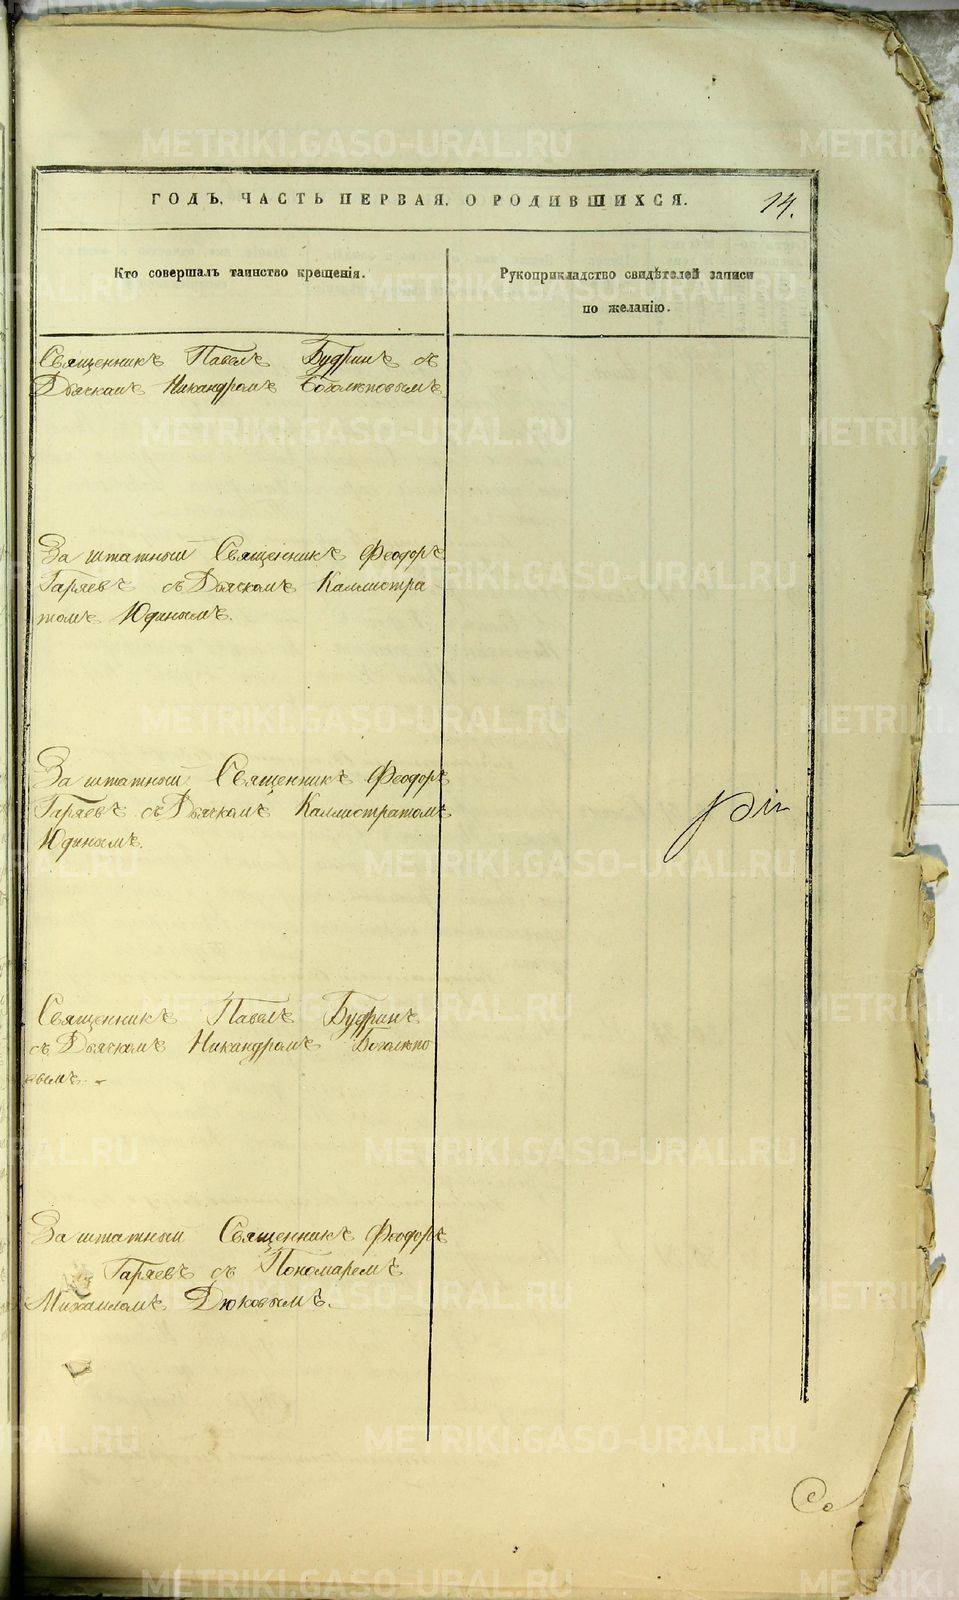 ГОДЪ, ЧАСТЬ ПЕРВАЯ, О РОДИВШИХСЯ.
14.
Кто совершалъ таинство крещенія.
Рукоприкладство свидѣтелей записи
по желанію.
Священникъ Павелъ Будринъ съ
Дьячкомъ Никандромъ Боголѣповымъ
Заштатный Священникъ Феодоръ
Гаряевъ съ Дьячкомъ Каллистра
томъ Юдинымъ.
Заштатный Священникъ Феодоръ
Гаряевъ съ Дьячкомъ Каллистратомъ
Юдинымъ.
Священникъ Павелъ Будринъ
съ Дьячкомъ Никандромъ Боголѣпо
вымъ. -
Заштатный Священникъ Феодоръ
Гаряевъ съ Пономаремъ
Михаиломъ Дюковымъ.
METRIKI.GASO-URAL.RU